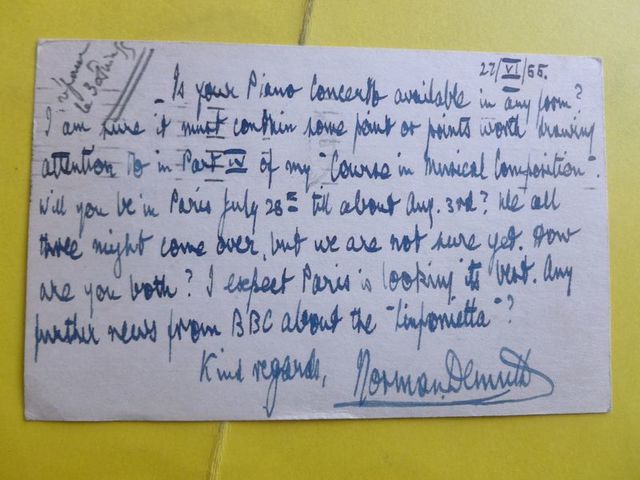 27/VI/55.
répondu
le 3
Is your Piano Concerto available in any form?
I am sure it must contain some point or points worth drawing
attention to in Part IV of my "Course in Musical Composition".
Will you be in Paris July 28th till about Aug. 3rd? We all
three might come over, but we are not sure yet. How
are you both? I expect Paris is looking its best. Any
further news from BBC about the "Sinfonietta"?
Kind regards,
Norman Demuth